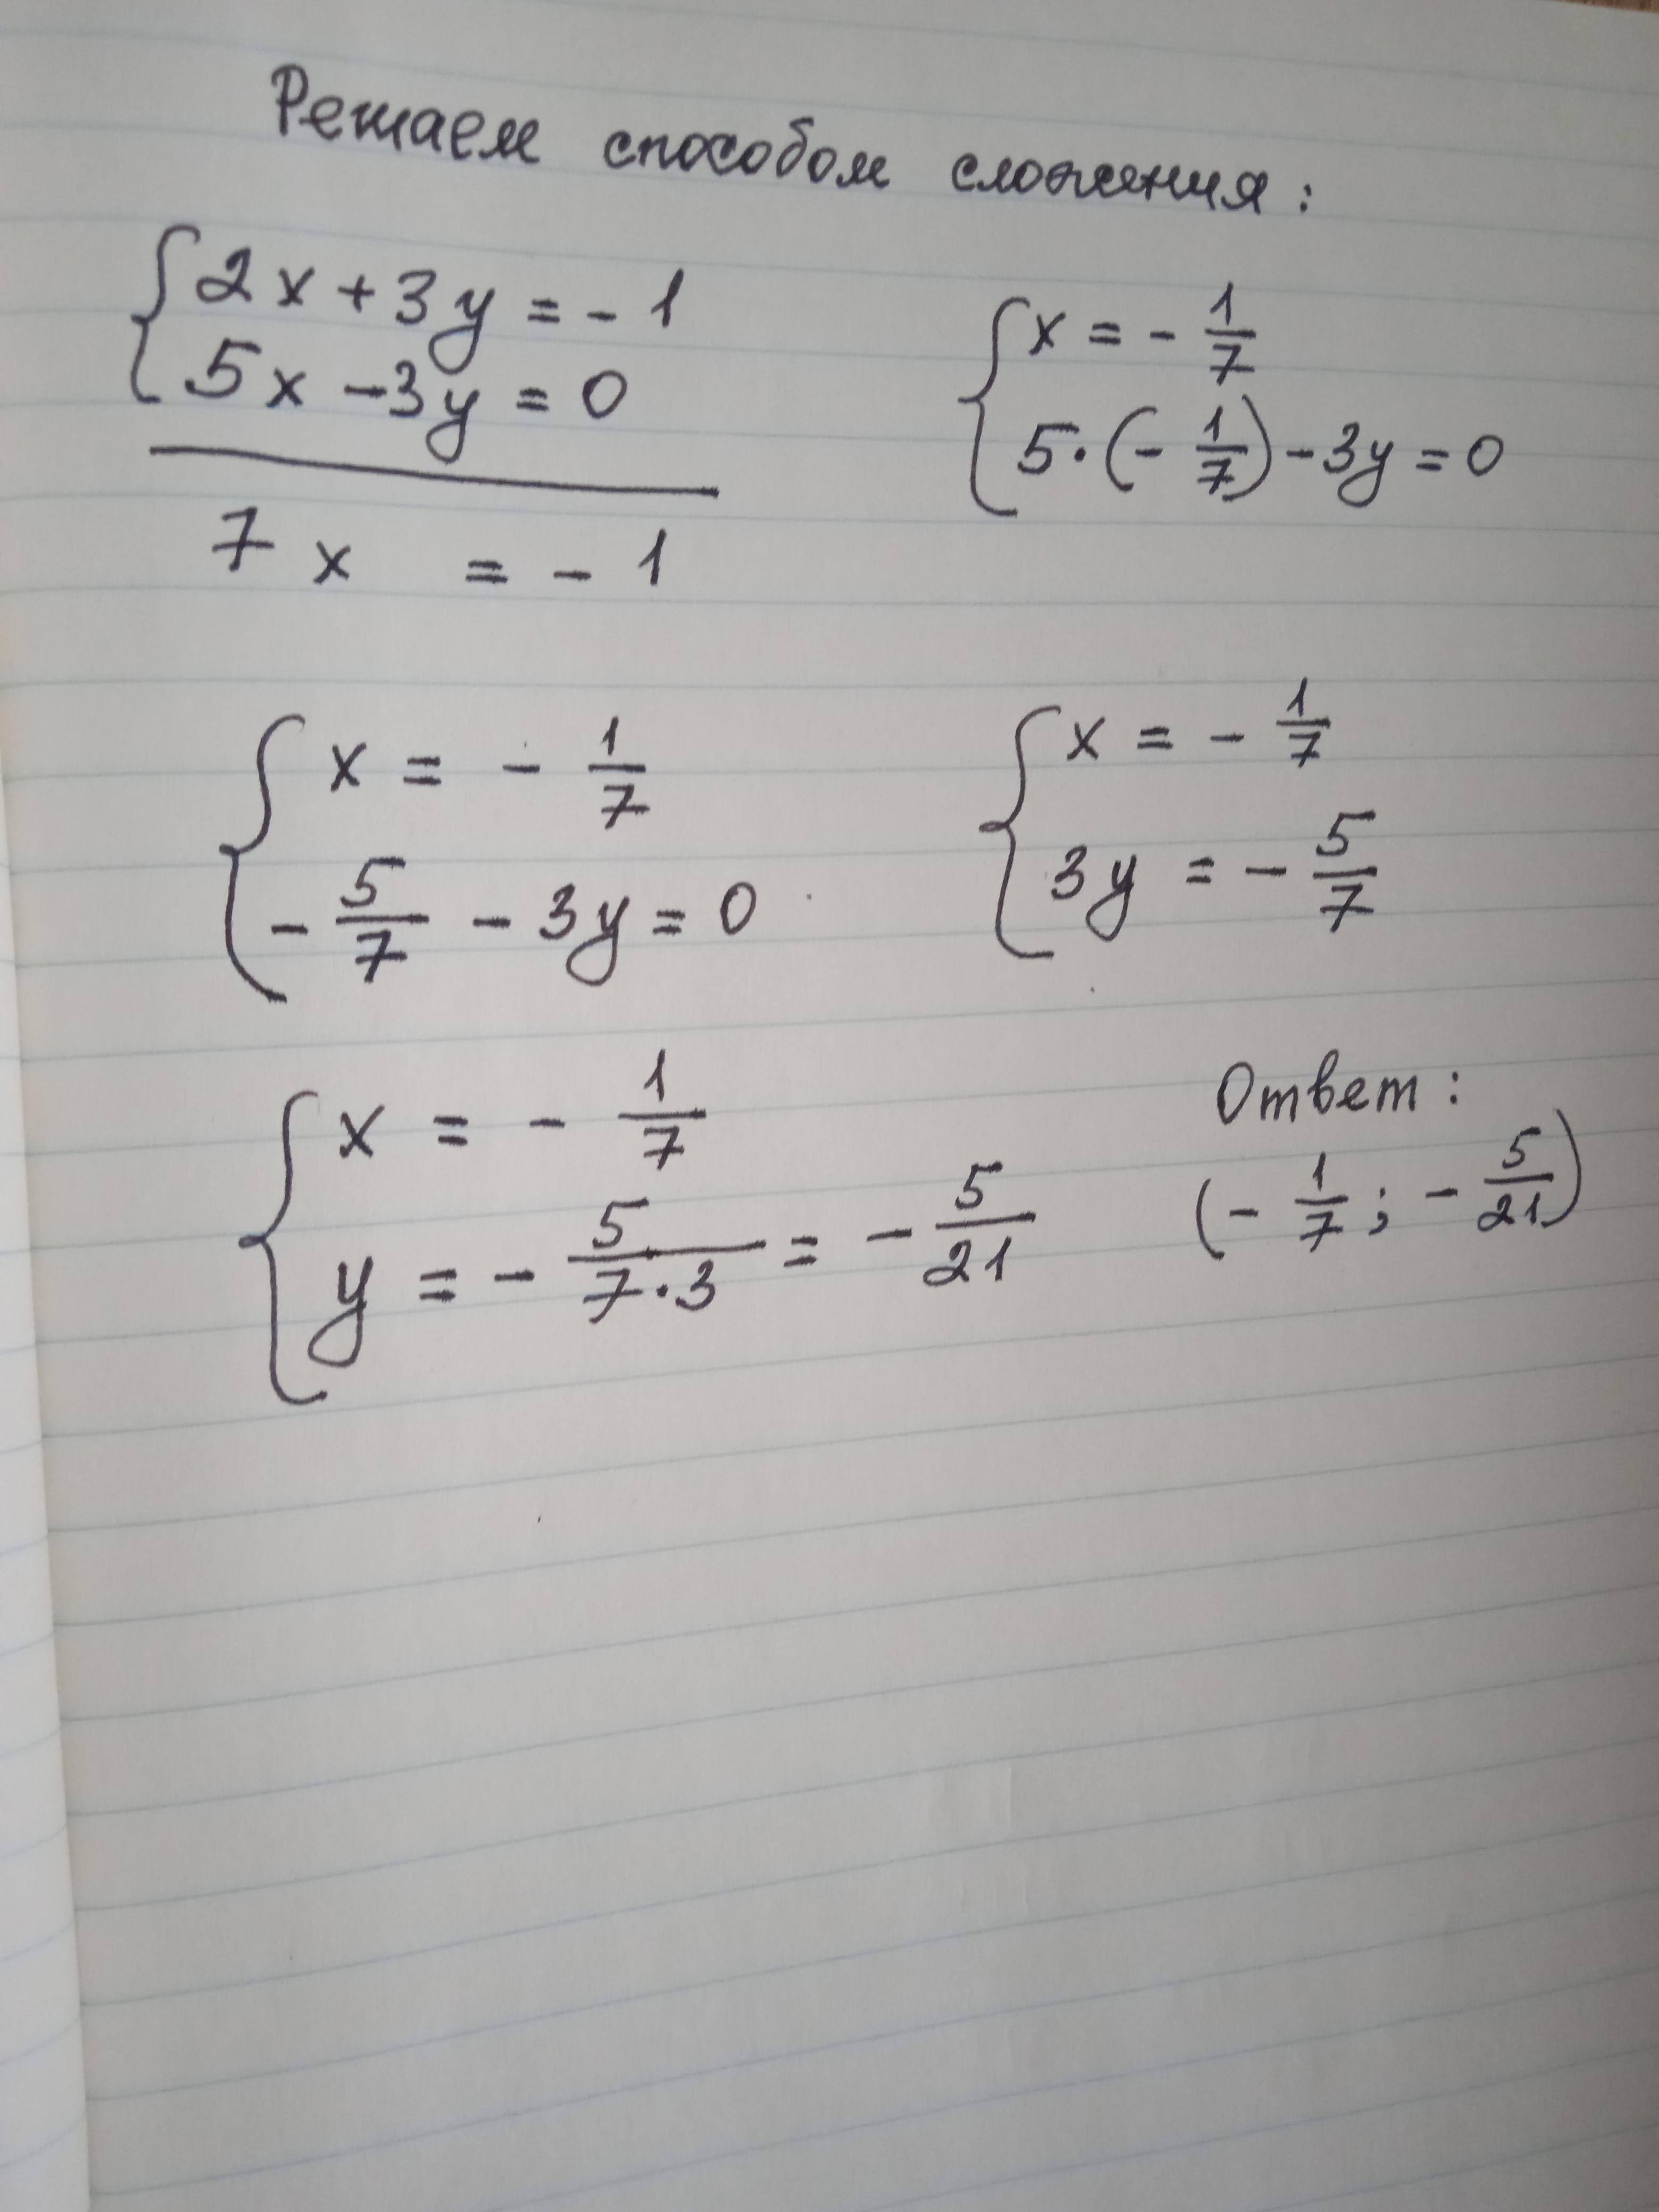 Решаем способом сложения:
{ 2x + 3y = - 1
5x - 3y = 0
7x = - 1
{ x = - 1/7
5 · (- 1/7) - 3y = 0
{ x = - 1/7
- 5/7 - 3y = 0
{ x = - 1/7
3y = - 5/7
{ x = - 1/7
y = - 5/(7·3) = - 5/21
Ответ:
(- 1/7 ; - 5/21)